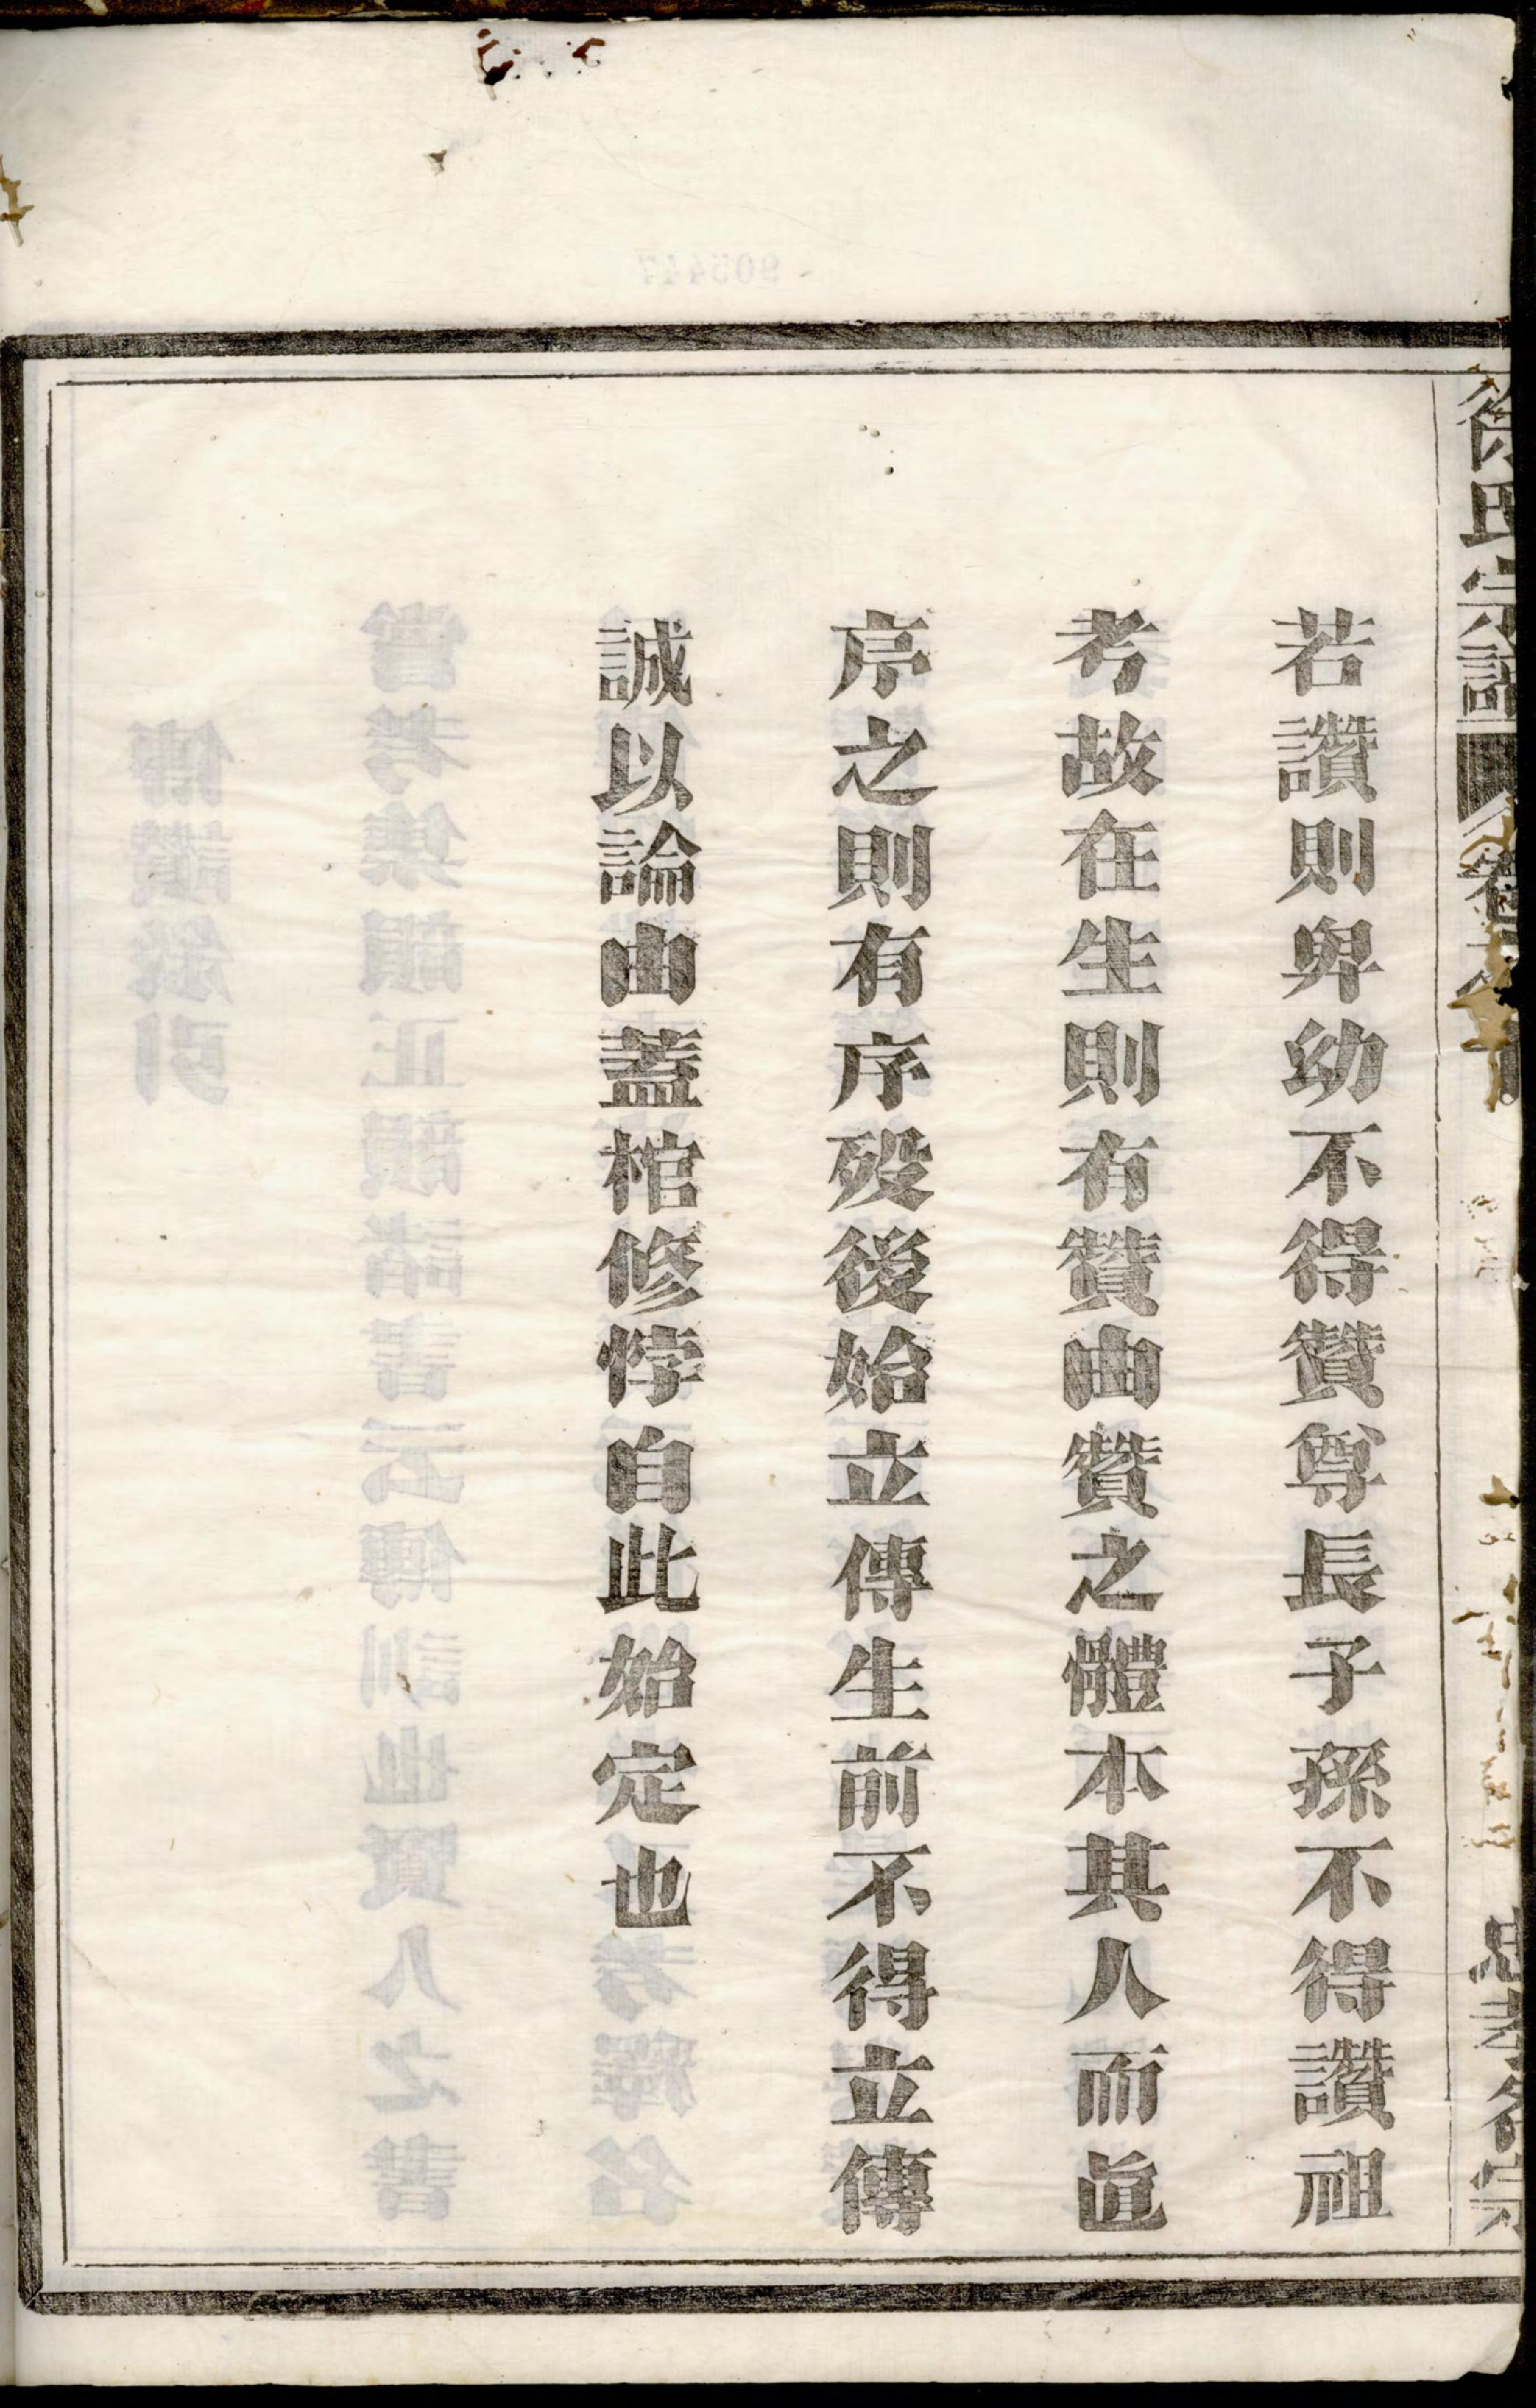 徐氏宗譜
若讚則卑幼不得贊尊長子孫不得讚祖
考故在生則有贊由贊之體本其人而眞
序之則有序歿後始立傳生前不得立傳
誠以論由蓋棺修悖自此始定也